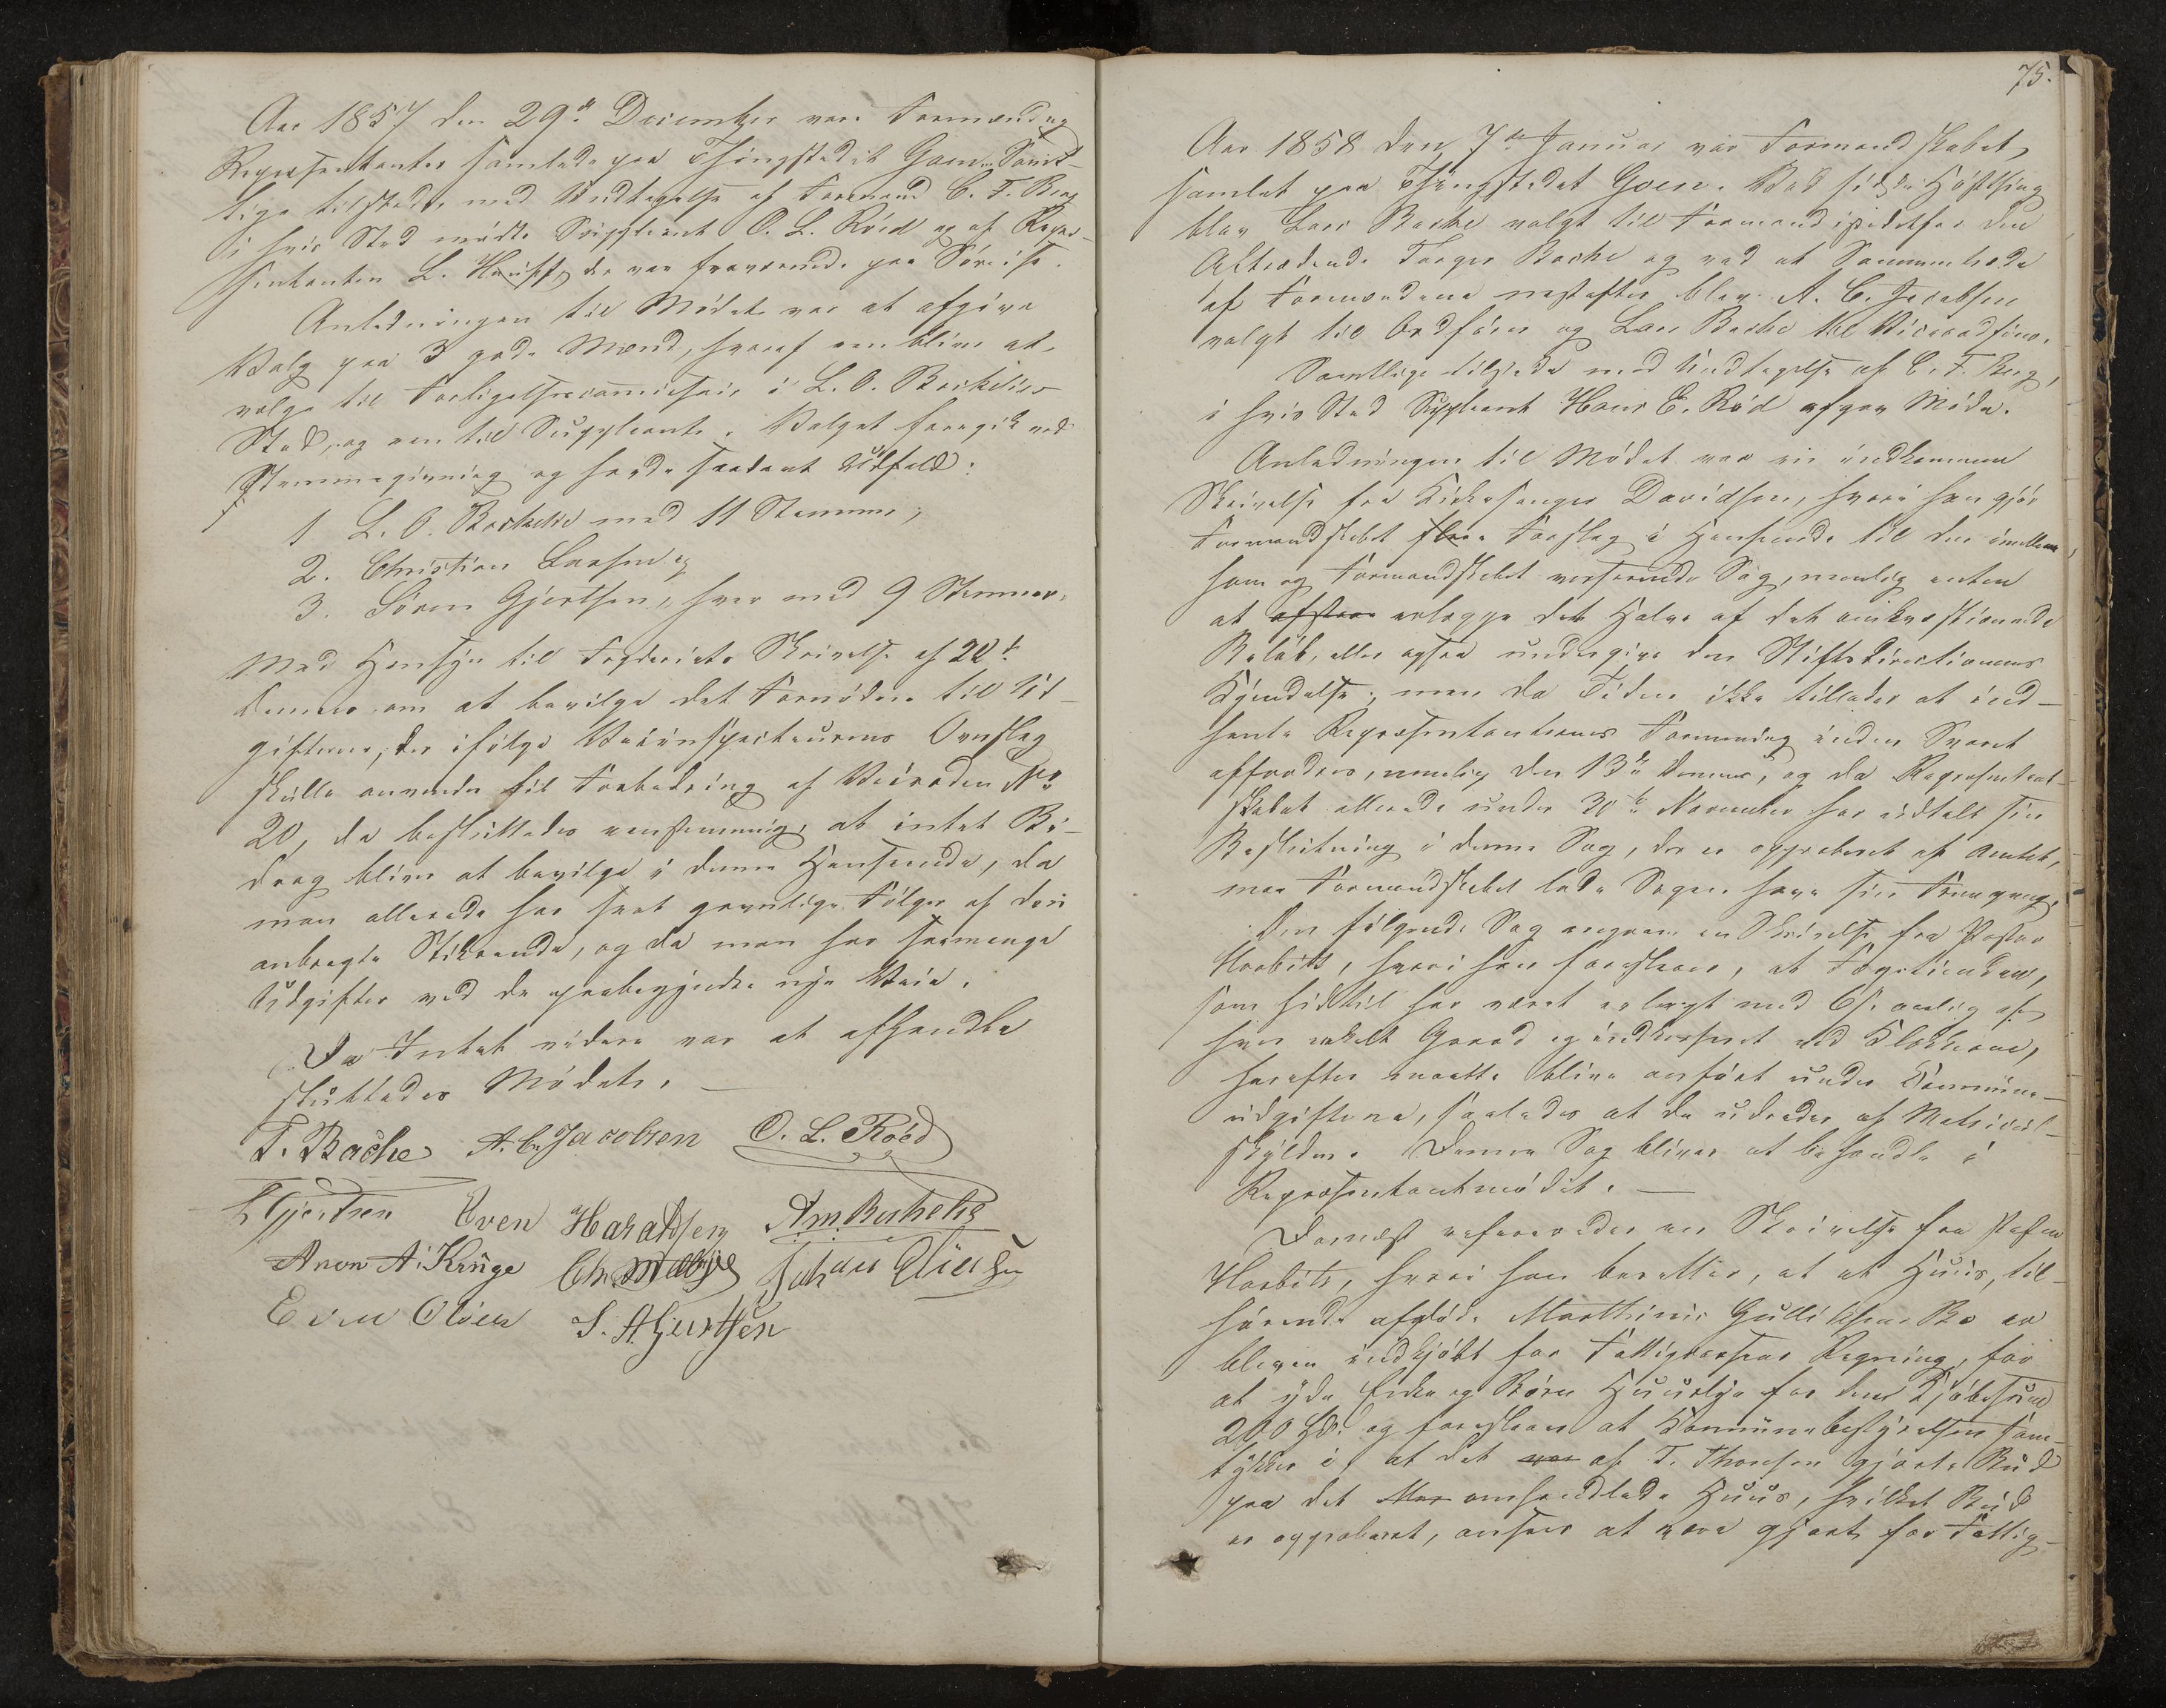 Aar 1857 den 29de December vare Formænd og
Repræsentanter samlede paa Thingstedet Goen. Samt-
lige tilstede, med Undtagelse af Formand C. F. Berg
i hvis Sted mødte Suppleant O. L. Röed og af Repræ-
sentanten L. der var fraværende paa Søreise.
Anledningen til Mødet var at afgive
Valg paa 3 gode Mænd, hvoraf een bliver at
vælge til Forligelsescommissair i L. O. Berkelies
Sted, og een til Suppleant. Valget foregik ved
Stemmegivning og havde saadant Udfald:
1 L. O. Berkelie med 11 Stemmer,
2. Christian Larsen og
3. Søren Gjertsen, hver med 9 Stemmer.
Med Hensyn til Fogderiets Skrivelse af 22de
dennes om at bevilge det Fornødne til Ud-
gifterne, der ifølge Veiinspecteurens Overslag
skulle anvendes til Forbedring af Veiroden No
20, da besluttedes eenstemmig, at intet Bi-
drag bliver at bevilge i denne Henseende, da
man allerede har havt gavnlige Følger af den
anbragte Stikrende, og da man har saamange
Udgifter ved de paabegyndte nye Veie.
Da Intet videre var at afhandle
sluttedes Mødet. —
T. Bache A. C. Jacobsen O. L. Röed
L Gjertsen Even Haraldsen Am. Berkelie
Aron A. Krüge Chr. Johan Olsen
Even Olsen S. A Gjertsen
75.
Aar 1858 den 7de Januar var Formandskabet
samlet paa Thingstedet Goen. Ved sidste Høstthing
blev Lars Bache valgt til Formand istedetfor den
Aftrædende Torger Bache og ved at Sammentræde
af Formændene næstefter blev A. C. Jacobsen
valgt til Ordfører og Lars Bache til Viceordfører.
Samtlige tilstede med Undtagelse af C. F. Berg,
i hvis Sted Suppleant Hans E. Röd afgav Møde.
Anledningen til Mødet var en indkommen
Skrivelse fra Kirkesanger Davidsen, hvori han gjør
Formandskabet flere Forslag i Henseende til den imellem
ham og Formandskabet verserende Sag, nemlig enten
at afstaae erlægge det Halve af det omkvæstionerede
Beløb, eller ogsaa undergive den Stiftsdirectionens
Kjendelse; men da Tiden ikke tillader at ind-
hente Repræsentanternes Formening inden Svaret
affordres, nemlig den 13de dennes, og da Repræsentant-
skabet allerede under 30te November har udtalt sin
Beslutning i denne Sag, der er approberet af Amtet,
maa Formandskabet lade Sagen have sin Fremgang.
Den følgende Sag angaaer en Skrivelse fra Pastor
Horbitz, hvori han foreslaaer, at
som hidtil har været erlagt med 6 s. aarlig af
hver enkelt Gaard og indkasseret ved Klokkeren,
herefter maatte blive anført under Commune-
udgifterne, saaledes at de udredes af Matricul-
skylden. Denne Sag bliver at behandle i
Repræsentantmødet. —
Dernæst refereredes en Skrivelse fra Pastor
Horbitz, hvori han beretter, at et Huus, til-
hørende afgløde Marthinus Gullichsen Bö er
bleven indkjøbt for Fattigkassens Regning, for
at yde Enke og Børn Huuslye for den Kjøbesum
200 Spd. og foreslaaer at Communebestyrelsen sam-
tykker i, at det var af T. Thorsen gjorte Bud
paa det omhandlede Huus, hvilket Bud
er approberet, ansees at være gjort for Fattig-